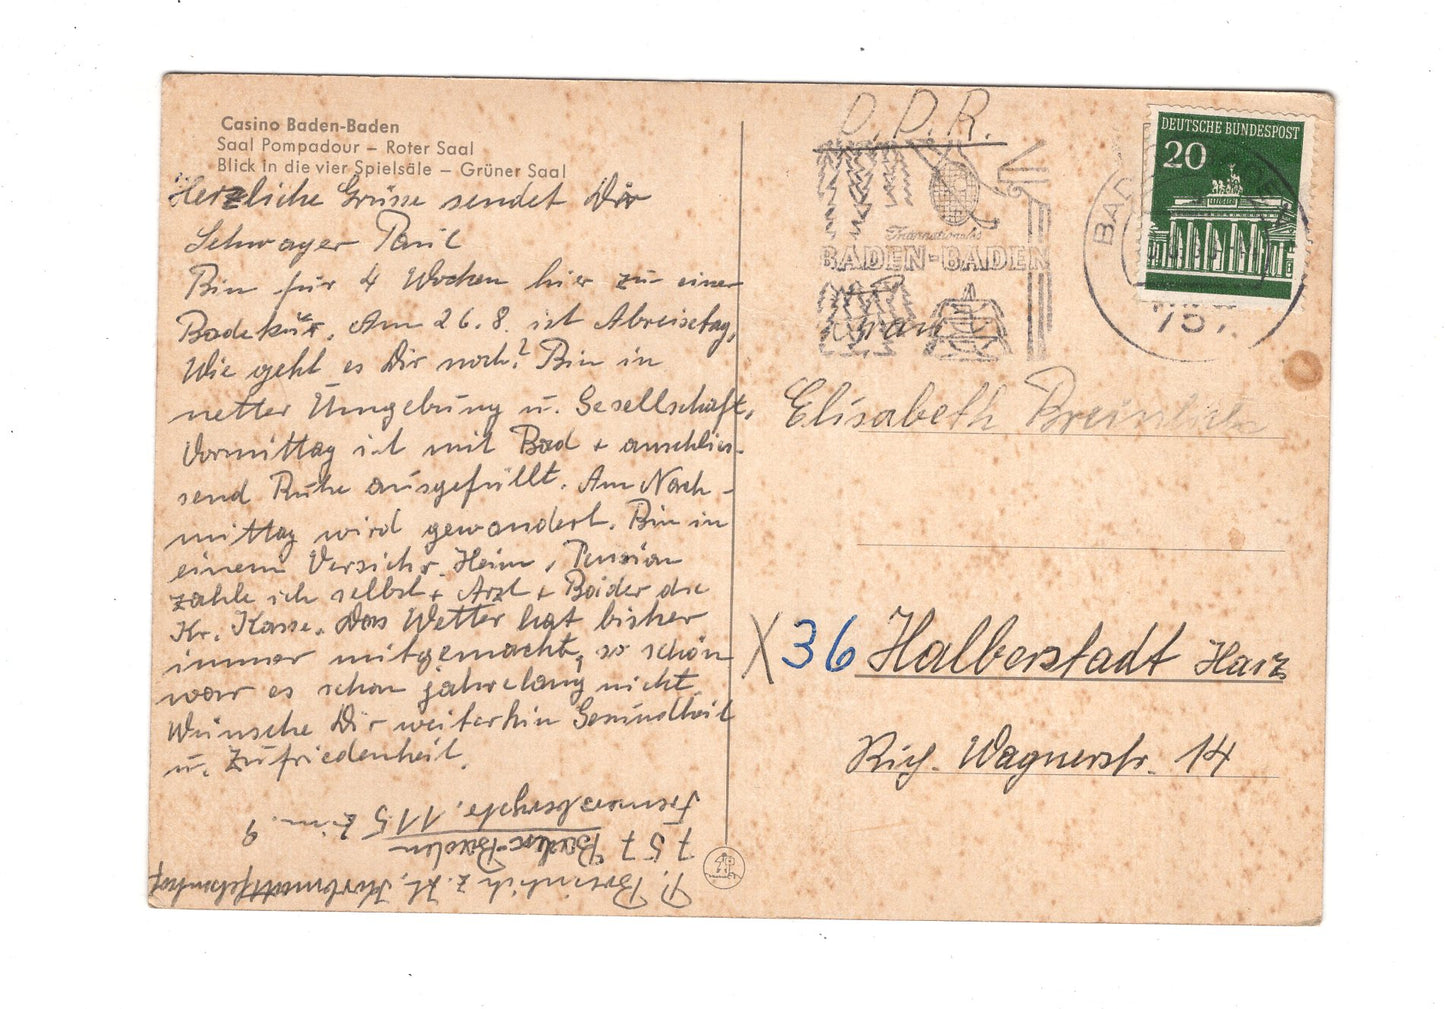 Casino Baden-Baden
Saal Pompadour – Roter Saal
Blick in die vier Spielsäle – Grüner Saal
Herzliche Grüsse sendet Dir
Schwager Paul
Bin für 4 Wochen hier zu einer
Badekur. Am 26.8. ist Abreisetag,
Wie geht es Dir noch? Bin in
netter Umgebung u. Gesellschaft,
Vormittag ist mit Bad + anschlies-
send Ruhe ausgefüllt. Am Nach-
mittag wird gewandert. Bin in
einem Versichr. Heim, Pension
zahle ich selbst + Arzt + Bäder die
Kr. Kasse. Das Wetter hat bisher
immer mitgemacht, so schön
war es schon jahrelang nicht
Wünsche Dir weiterhin Gesundheit
u. Zufriedenheit.
P. Breinlich z. Zt.
757 Baden-Baden
115 Zim. 9
D.D.R.
Internationales
BADEN-BADEN
DEUTSCHE BUNDESPOST
20
BADEN-BADEN
757
Frau
Elisabeth Breinlich
X 36 Halberstadt Harz
Rich. Wagnerstr. 14